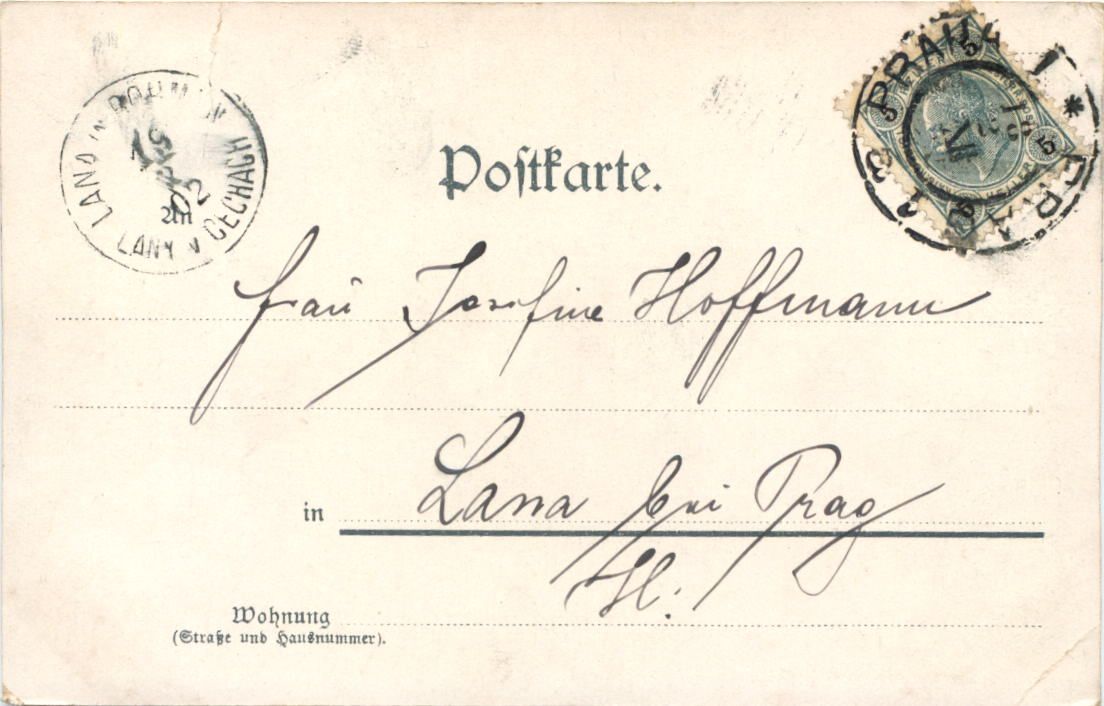 PRAHA 1 * PRAG
LANA IN BÖHMEN
02
LANY V ČECHÁCH
Postkarte.
An
Frau Josefine Hoffmann
in Lana bei Prag
Wohnung
(Straße und Hausnummer).